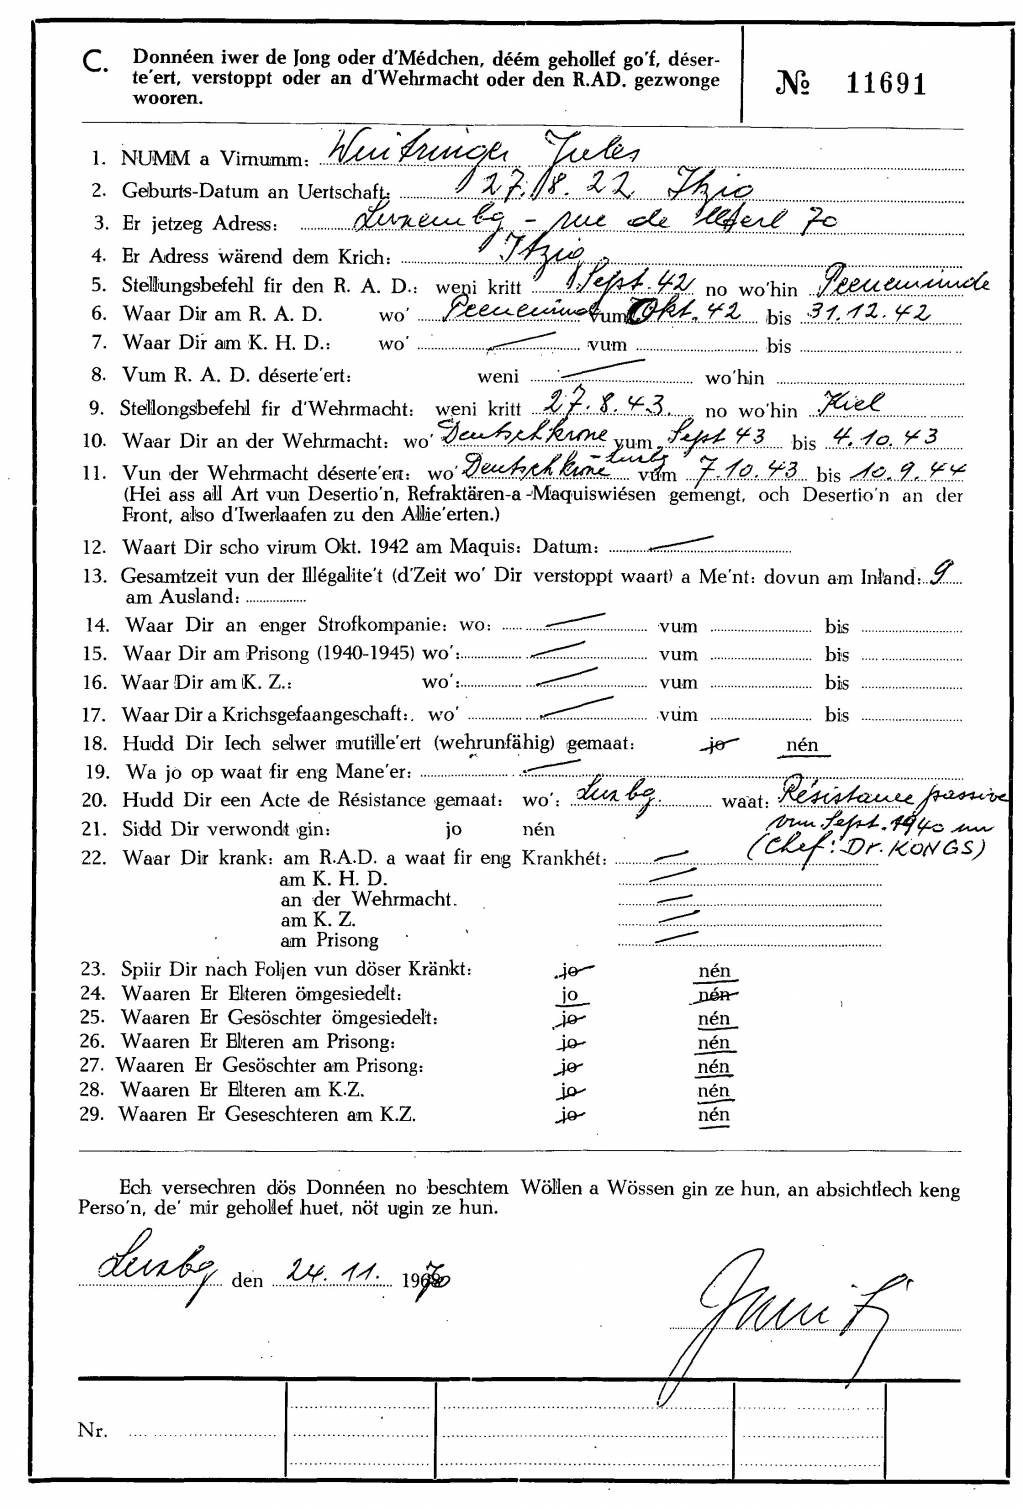 C. Donnéen iwer de Jong oder d'Médchen, déém gehollef go'f, déser-
te'ert, verstoppt oder an d'Wehrmacht oder den R.AD. gezwonge
wooren.
№ 11691
1. NUMM a Virnumm: Weitzinger Jules
2. Geburts-Datum an Uertschaft: 27. 8. 22 Itzig
3. Er jetzeg Adress: Luxembg - rue de 70
4. Er Adress wärend dem Krich: Itzig
5. Stellungsbefehl fir den R. A. D.: weni kritt Sept. 42 no wo'hin Peenemünde
6. Waar Dir am R. A. D. wo' Peenemünde vum Okt. 42 bis 31.12.42
7. Waar Dir am K. H. D.: wo' vum bis
8. Vum R. A. D. déserte'ert: weni wo'hin
9. Stellongsbefehl fir d'Wehrmacht: weni kritt 27.8.43. no wo'hin Kiel
10. Waar Dir an der Wehrmacht: wo' Deutschkrone vum Sept 43 bis 4.10.43
11. Vun der Wehrmacht déserte'ert: wo' Deutschkrone - Luxbg vum 7.10.43 bis 10.9.44
(Hei ass all Art vun Desertio'n, Refraktären-a-Maquiswiésen gemengt, och Desertio'n an der
Front, also d'Iwerlaafen zu den Allie'erten.)
12. Waart Dir scho virum Okt. 1942 am Maquis: Datum:
13. Gesamtzeit vun der Illégalite't (d'Zeit wo' Dir verstoppt waart) a Me'nt: dovun am Inland: 9
am Ausland:
14. Waar Dir an enger Strofkompanie: wo: vum bis
15. Waar Dir am Prisong (1940-1945) wo': vum bis
16. Waar Dir am K. Z.: wo': vum bis
17. Waar Dir a Krichsgefaangeschaft: wo' vum bis
18. Hudd Dir Iech selwer mutille'ert (wehrunfähig) gemaat: jo nén
19. Wa jo op waat fir eng Mane'er:
20. Hudd Dir een Acte de Résistance gemaat: wo': Luxbg. waat: Résistance passive
21. Sidd Dir verwondt gin: jo nén vum Sept. 1940 un
22. Waar Dir krank: am R.A.D. a waat fir eng Krankhét: (Chef: Dr. KONGS)
am K. H. D.
an der Wehrmacht.
am K. Z.
am Prisong
23. Spiir Dir nach Foljen vun döser Kränkt: jo nén
24. Waaren Er Elteren ömgesiedelt: jo nén
25. Waaren Er Gesöschter ömgesiedelt: jo nén
26. Waaren Er Elteren am Prisong: jo nén
27. Waaren Er Gesöschter am Prisong: jo nén
28. Waaren Er Elteren am K.Z. jo nén
29. Waaren Er Geseschteren am K.Z. jo nén
Ech versechren dös Donnéen no beschtem Wöllen a Wössen gin ze hun, an absichtlech keng
Perso'n, de' mir gehollef huet, nöt ugin ze hun.
Luxbg den 24. 11. 1970
Nr.